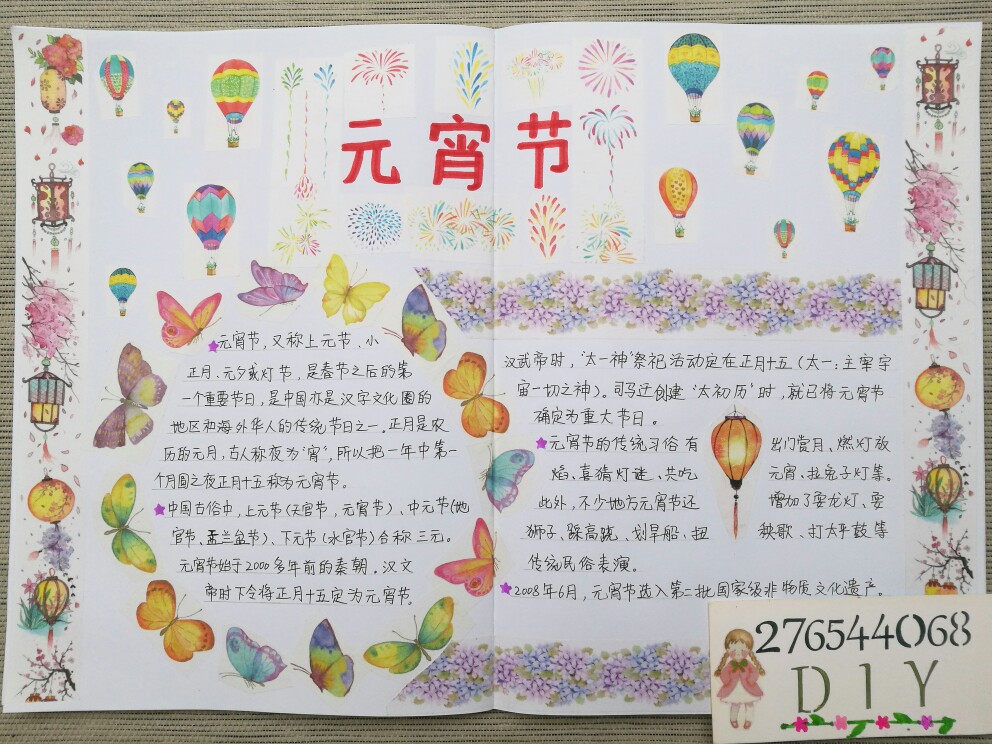 元宵节
元宵节，又称上元节、小
正月、元夕或灯节，是春节之后的第
一个重要节日，是中国亦是汉字文化圈的
地区和海外华人的传统节日之一。正月是农
历的元月，古人称夜为"宵"，所以把一年中第一
个月圆之夜正月十五称为元宵节。
中国古俗中，上元节（天官节，元宵节）、中元节（地
官节、盂兰盆节）、下元节（水官节）合称三元。
元宵节始于2000多年前的秦朝。汉文
帝时下令将正月十五定为元宵节。
汉武帝时，"太一神"祭祀活动定在正月十五（太一：主宰宇
宙一切之神）。司马迁创建"太初历"时，就已将元宵节
确定为重大节日。
元宵节的传统习俗有 出门赏月、燃灯放
焰、喜猜灯谜、共吃 元宵、拉兔子灯等。
此外，不少地方元宵节还 增加了耍龙灯、耍
狮子、踩高跷、划旱船、扭 秧歌、打太平鼓等
传统民俗表演。
2008年6月，元宵节选入第二批国家级非物质文化遗产。
276544068
DIY